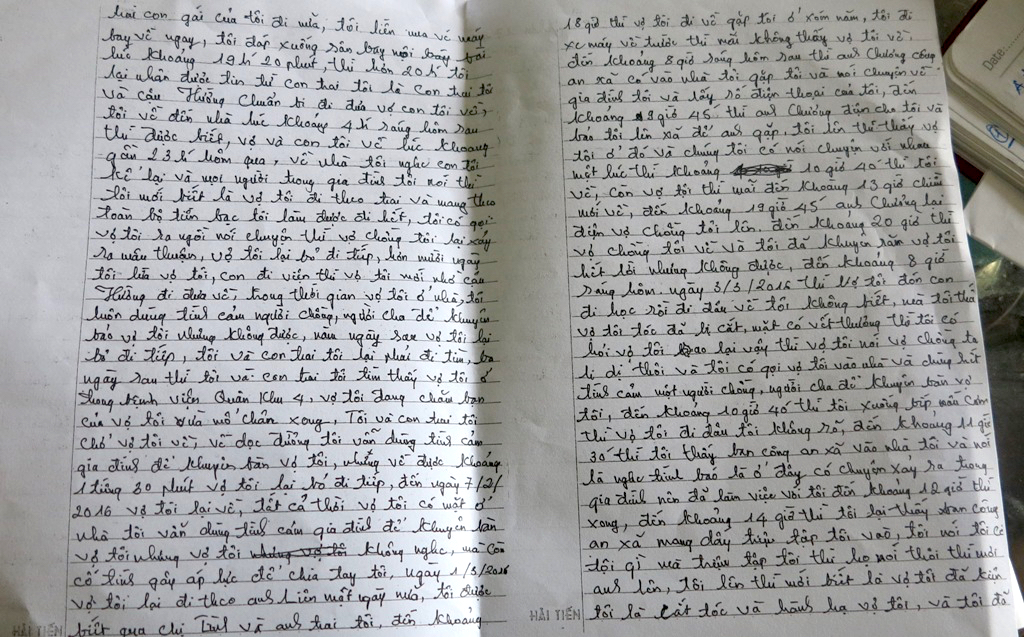 hai con gái của tôi đi nữa, tôi liền mua vé máy
bay về ngay, tôi đáp xuống sân bay nội bài
lúc khoảng 19h 20 phút, thì hơn 20h tôi
lại nhận được tin từ con trai tôi là con trai tôi
và cậu Hưởng chuẩn bị đi đưa vợ con tôi về,
tôi về đến nhà lúc khoảng 4h sáng hôm sau
thì được biết, vợ và con tôi về lúc khoảng
gần 23h hôm qua, về nhà tôi nghe con tôi
kể lại và mọi người trong gia đình tôi nói thì
tôi mới biết là vợ tôi đi theo trai và mang theo
toàn bộ tiền bạc tôi làm được đi hết, tôi có gọi
vợ tôi ra ngồi nói chuyện thì vợ chồng tôi lại xảy
ra mâu thuẫn, vợ tôi lại bỏ đi tiếp, hơn mười ngày
tôi lừa vợ tôi, con đi viện thì vợ tôi mới nhờ cậu
Hưởng đi đưa về, trong thời gian vợ tôi ở nhà, tôi
luôn dùng tình cảm người chồng, người cha để khuyên
bảo vợ tôi nhưng không được, năm ngày sau vợ tôi lại
bỏ đi tiếp, tôi và con trai tôi lại phải đi tìm, ba
ngày sau thì tôi và con trai tôi tìm thấy vợ tôi ở
trong bệnh viện Quân Khu 4, vợ tôi đang chăm bạn
của vợ tôi vừa mổ chân xong, Tôi và con trai tôi
chở vợ tôi về, về dọc đường tôi vẫn dùng tình cảm
gia đình để khuyên bản vợ tôi, nhưng về được khoảng
1 tiếng 30 phút vợ tôi lại bỏ đi tiếp, đến ngày 7/2/
2016 vợ tôi lại về, tất cả thời vợ tôi có mặt ở
nhà tôi vẫn dùng tình cảm gia đình để khuyên bản
vợ tôi nhưng vợ tôi không nghe, mà còn
cố tình gây áp lực để chia tay tôi, ngày 1/3/2016
vợ tôi lại đi theo anh Liên một ngày nữa, tôi được
biết qua chị Tình và anh trai tôi, đến khoảng
HẢI TIẾN
18 giờ thì vợ tôi đi về gặp tôi ở xóm năm, tôi đi
xe máy về trước thì mãi không thấy vợ tôi về.
đến khoảng 8 giờ sáng hôm sau thì anh Chương công
an xã có vào nhà tôi gặp tôi và nói chuyện về
gia đình tôi và lấy số điện thoại của tôi, đến
khoảng 9 giờ 45 thì anh Chương điện cho tôi và
bảo tôi lên xã để anh gặp, tôi lên thì thấy vợ
tôi ở đó và chúng tôi có nói chuyện với nhau
một lúc thì khoảng 10 giờ 40 thì tôi
về, còn vợ tôi thì mãi đến khoảng 13 giờ chiều
mới về, đến khoảng 19 giờ 45 anh Chương lại
điện vợ chồng tôi lên. đến khoảng 20 giờ thì
vợ chồng tôi về và tôi đã khuyên răn vợ tôi
hết lời nhưng không được, đến khoảng 8 giờ
sáng hôm. ngày 3/3/2016 thì vợ tôi đón con
đi học rồi đi đâu về tôi không biết, mà tôi thấy
vợ tôi tóc đã bị cắt, mặt có vết thương thì tôi có
hỏi vợ tôi sao lại vậy thì vợ tôi nói vợ chồng ta
li dị thôi và tôi có gọi vợ tôi vào nhà và dùng hết
tình cảm một người chồng, người cha để khuyên bản vợ
tôi, đến khoảng 10 giờ 40 thì tôi xuống bếp nấu cơm
thì vợ tôi đi đâu tôi không rõ, đến khoảng 11 giờ
30 thì tôi thấy ban công an xã vào nhà tôi và nói
là nghe trình báo là ở đây có chuyện xảy ra trong
gia đình nên đã làm việc với tôi đến khoảng 12 giờ thì
xong, đến khoảng 14 giờ thì tôi lại thấy ban công
an xã mang giấy triệu tập tôi vào, tôi nói tôi có
tội gì mà triệu tập tôi thì họ nói thôi thì mời
anh lên, tôi lên thì mới biết là vợ tôi đã kiện
tôi là cắt tóc và hành hạ vợ tôi, và tôi đã
HẢI TIẾN
Date: